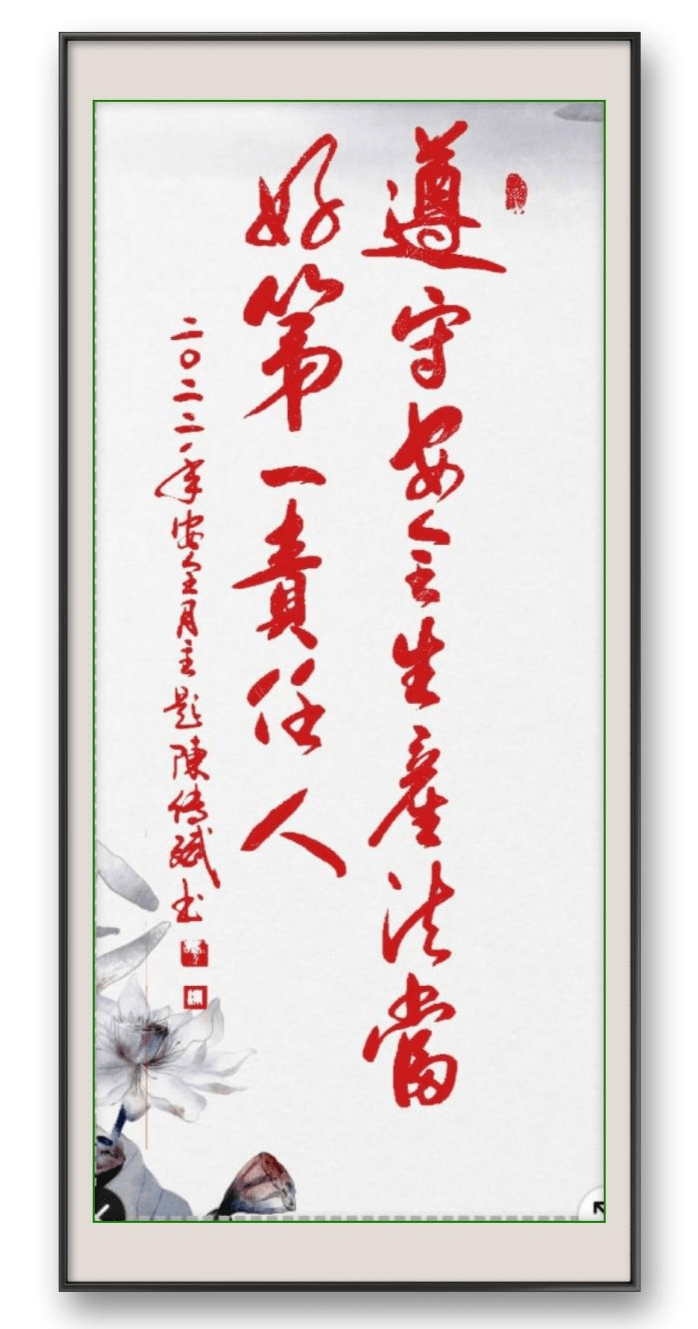 遵守安全生產法當
好第一責任人
二〇二二年安全月主題陳傳斌书